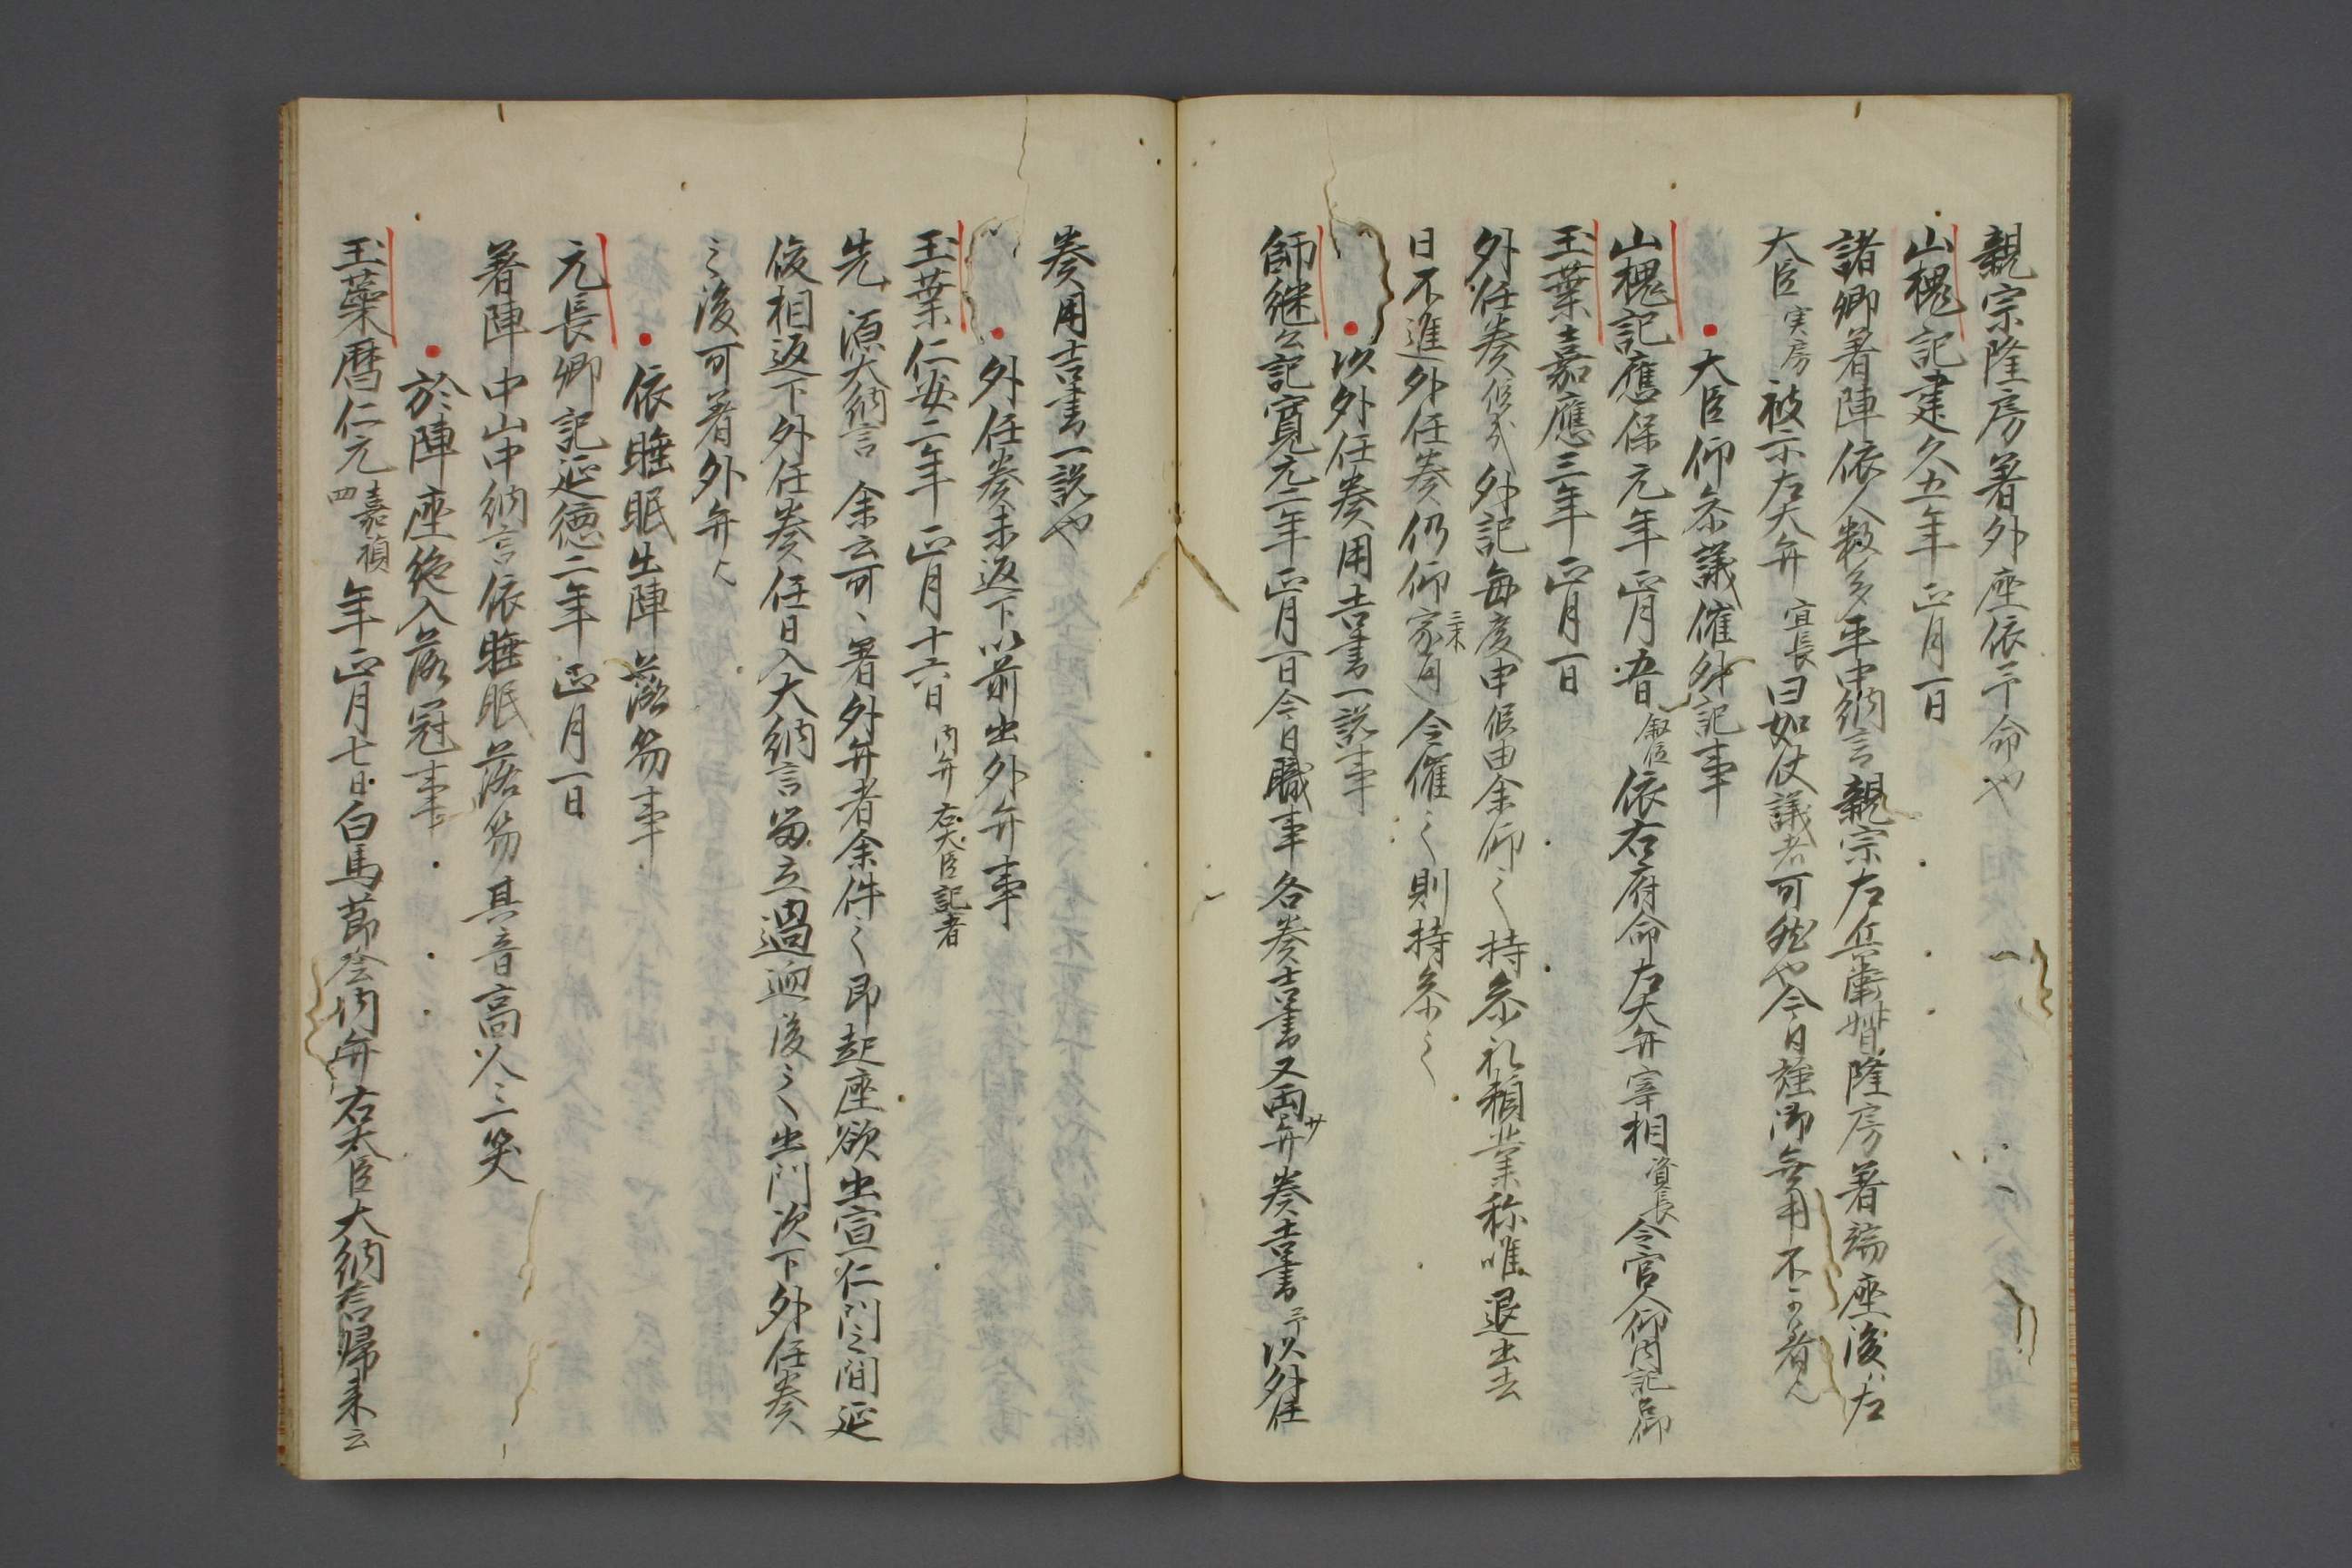 親宗隆房着外座依予命也
山槐記建久五年正月一日
諸卿着陣依人数多平中納言親宗左兵衛督隆房着端座後八左
大臣実房被示左大弁宜長曰如仗議者可然也今日強御無用不可着
大臣仰参議催外記事
山槐記應保元年正月五日叙位依右府命左大弁宰相資長令官人仰内記召仰
玉葉嘉應三年正月一日
外任奏外記毎度申候由余仰之持参礼頼業称唯退出去
日不進外任奏仍仰令催之則持参之
以外任奏用吉書一説事
師継公記寛元二年正月一日今日職事各奏吉書又両弁奏吉書予以外任
奏用吉書一説也
外任奏未返下以前出外弁事
玉葉仁安二年正月十六日内弁右大臣記者
先源大納言余云可着外弁者余伴之即起座欲出宣仁門之間延
俊相返下外任奏任日入大納言留立過廻後之出門次下外任奏
之後可着外弁
依睡眠出陣落笏事
元長卿記延徳二年正月一日
着陣中山中納言依睡眠落笏其音高人々笑
於陣座絶入落冠事
玉蘂暦仁元嘉禎四年正月七日白馬節会内弁右大臣大納言帰来云